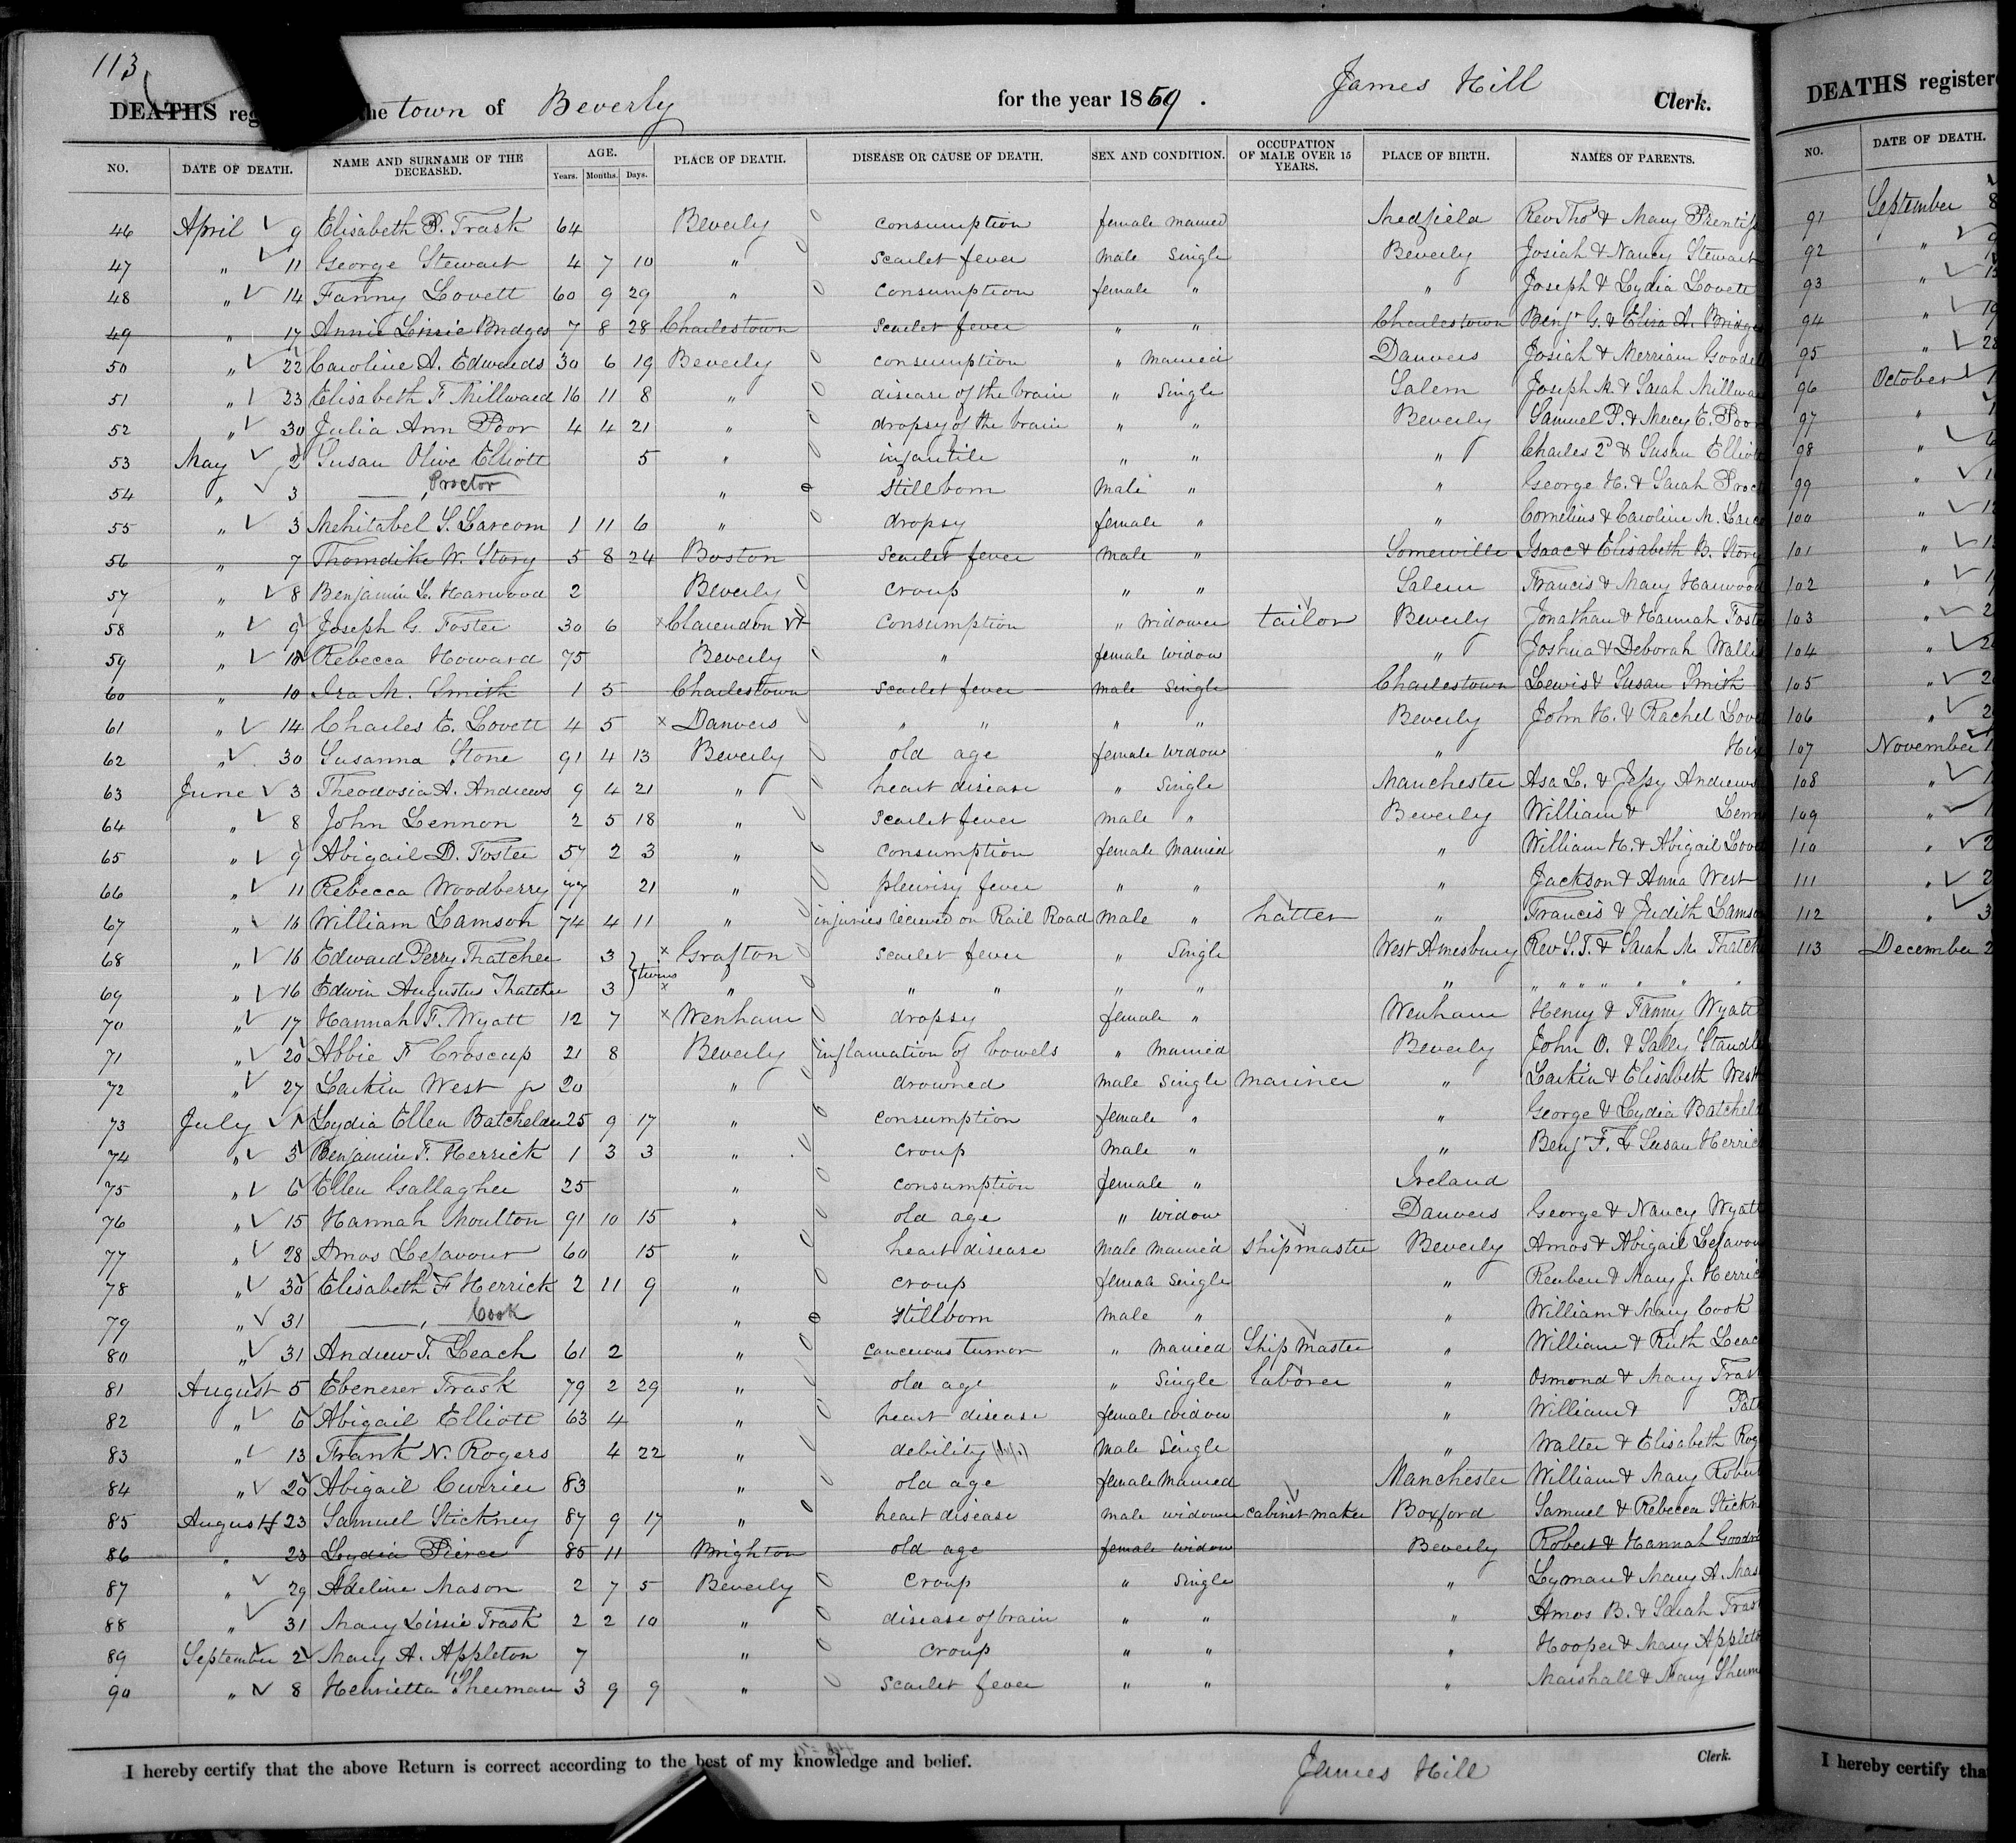 113
DEATHS reg the town of Beverly for the year 1859. James Hill Clerk.
NO. DATE OF DEATH. NAME AND SURNAME OF THE DECEASED. AGE. Years. Months. Days. PLACE OF DEATH. DISEASE OR CAUSE OF DEATH. SEX AND CONDITION. OCCUPATION OF MALE OVER 15 YEARS. PLACE OF BIRTH. NAMES OF PARENTS.
46 April 9 Elisabeth P. Trask 64 Beverly consumption female married Medfield Rev Thos & Mary Prentiss
47 " 11 George Stewart 4 7 10 " Scarlet fever male Single Beverly Josiah & Nancy Stewart
48 " 14 Fanny Lovett 60 9 29 " Consumption female " " Joseph & Lydia Lovett
49 " 17 Annie Lizzie Bridges 7 8 28 Charlestown Scarlet fever " " Charlestown Benj. G. & Eliza A. Bridge
50 " 22 Caroline A. Edwards 30 6 19 Beverly consumption " married Danvers Josiah & Merriam Goodel
51 " 23 Elisabeth F Millward 16 11 8 " disease of the brain " Single Salem Joseph M. & Sarah Millwa
52 " 30 Julia Ann Poor 4 4 21 " dropsy of the brain " " Beverly Samuel P. & Mercy E. Poor
53 May 2 Susan Olive Elliott 5 " infantile " " " Charles 2d & Susan Elliot
54 " 3 ——, Proctor " Stillborn Male " " George H. & Sarah Proc
55 " 3 Mehitabel S. Larcom 1 11 6 " dropsy female " " Cornelius & Caroline M. Larc
56 " 7 Thorndike W. Story 5 8 24 Boston Scarlet fever male " Somerville Isaac & Elisabeth B. Story
57 " 8 Benjamin L. Harwood 2 Beverly croup " " Salem Francis & Mary Harwood
58 " 9 Joseph G. Foster 30 6 x Clarendon Vt Consumption " Widower tailor Beverly Jonathan & Hannah Foste
59 " 10 Rebecca Howard 75 Beverly " female widow " Joshua & Deborah Wallis
60 " 10 Ira M. Smith 1 5 Charlestown Scarlet fever male Single Charlestown Lewis & Susan Smith
61 " 14 Charles E. Lovett 4 5 x Danvers " " " " Beverly John H. & Rachel Love
62 " 30 Susanna Stone 91 4 13 Beverly old age female widow " Hi
63 June 3 Theodosia A. Andrews 9 4 21 " heart disease " Single Manchester Asa L. & Jessy Andrews
64 " 8 John Lennon 2 5 18 " Scarlet fever male " Beverly William & Lenn
65 " 9 Abigail D. Foster 57 2 3 " Consumption female Married " William H. & Abigail Love
66 " 11 Rebecca Woodberry 77 21 " pleurisy fever " " " Jackson & Anna West
67 " 16 William Lamson 74 4 11 " injuries recieved on Rail Road Male " hatter " Francis & Judith Lamso
68 " 16 Edward Perry Thatcher 3 } twins x Grafton Scarlet fever " Single West Amesbury Rev S. T. & Sarah M. Thatch
69 " 16 Edwin Augustus Thatcher 3 x " " " " " " " " " " " "
70 " 17 Hannah F. Wyatt 12 7 x Wenham dropsy female " Wenham Henry & Fanny Wyatt
71 " 20 Abbie F Croscup 21 8 Beverly inflamation of bowels " married Beverly John O. & Sally Standl
72 " 27 Larkin West jr 20 " drowned male Single mariner " Larkin & Elisabeth West
73 July 1 Lydia Ellen Batchelder 25 9 17 " Consumption female " " George & Lydia Batcheld
74 " 5 Benjamin F. Herrick 1 3 3 " Croup male " " Benj F. & Susan Herric
75 " 6 Ellen Gallagher 25 " consumption female " Ireland
76 " 15 Hannah Moulton 91 10 15 " old age " widow Danvers George & Nancy Wyatt
77 " 28 Amos Lefavour 60 15 " heart disease male married Shipmaster Beverly Amos & Abigail Lefavou
78 " 30 Elisabeth F Herrick 2 11 9 " croup female Single " Reuben & Mary J. Herric
79 " 31 ——, Cook " Stillborn male " " William & Mary Cook
80 " 31 Andrew T. Leach 61 2 " cancerous tumor " married Ship Master " William & Ruth Leac
81 August 5 Ebenezer Trask 79 2 29 " old age " Single laborer " Osmond & Mary Tras
82 " 6 Abigail Elliott 63 4 " heart disease female widow " William & Pat
83 " 13 Frank N. Rogers 4 22 " debility male Single " Walter & Elisabeth Rog
84 " 20 Abigail Currier 83 " old age female married Manchester William & Mary Rober
85 August 23 Samuel Stickney 87 9 17 " heart disease male widower cabinet maker Boxford Samuel & Rebecca Stickn
86 " 23 Lydia Pierce 85 11 Brighton old age female widow Beverly Robert & Hannah Goodri
87 " 29 Adeline Mason 2 7 5 Beverly Croup " Single " Lyman & Mary A. Mas
88 " 31 Mary Lizzie Trask 2 2 10 " disease of brain " " " Amos B. & Sarah Tras
89 September 2 Mary A. Appleton 7 " croup " " " Hooper & Mary Appleto
90 " 8 Henrietta Sherman 3 9 9 " Scarlet fever " " " Marshall & Mary Sherm
I hereby certify that the above Return is correct according to the best of my knowledge and belief. James Hill Clerk.
DEATHS register
NO. DATE OF DEATH.
91 September 8
92 "
93 "
94 " 19
95 " 28
96 October 1
97 "
98 " 6
99 " 1
100 " 1
101 " 1
102 " 1
103 " 2
104 " 2
105 " 2
106 " 2
107 November 1
108 " 1
109 " 1
110 " 2
111 " 2
112 " 3
113 December 2
I hereby certify tha